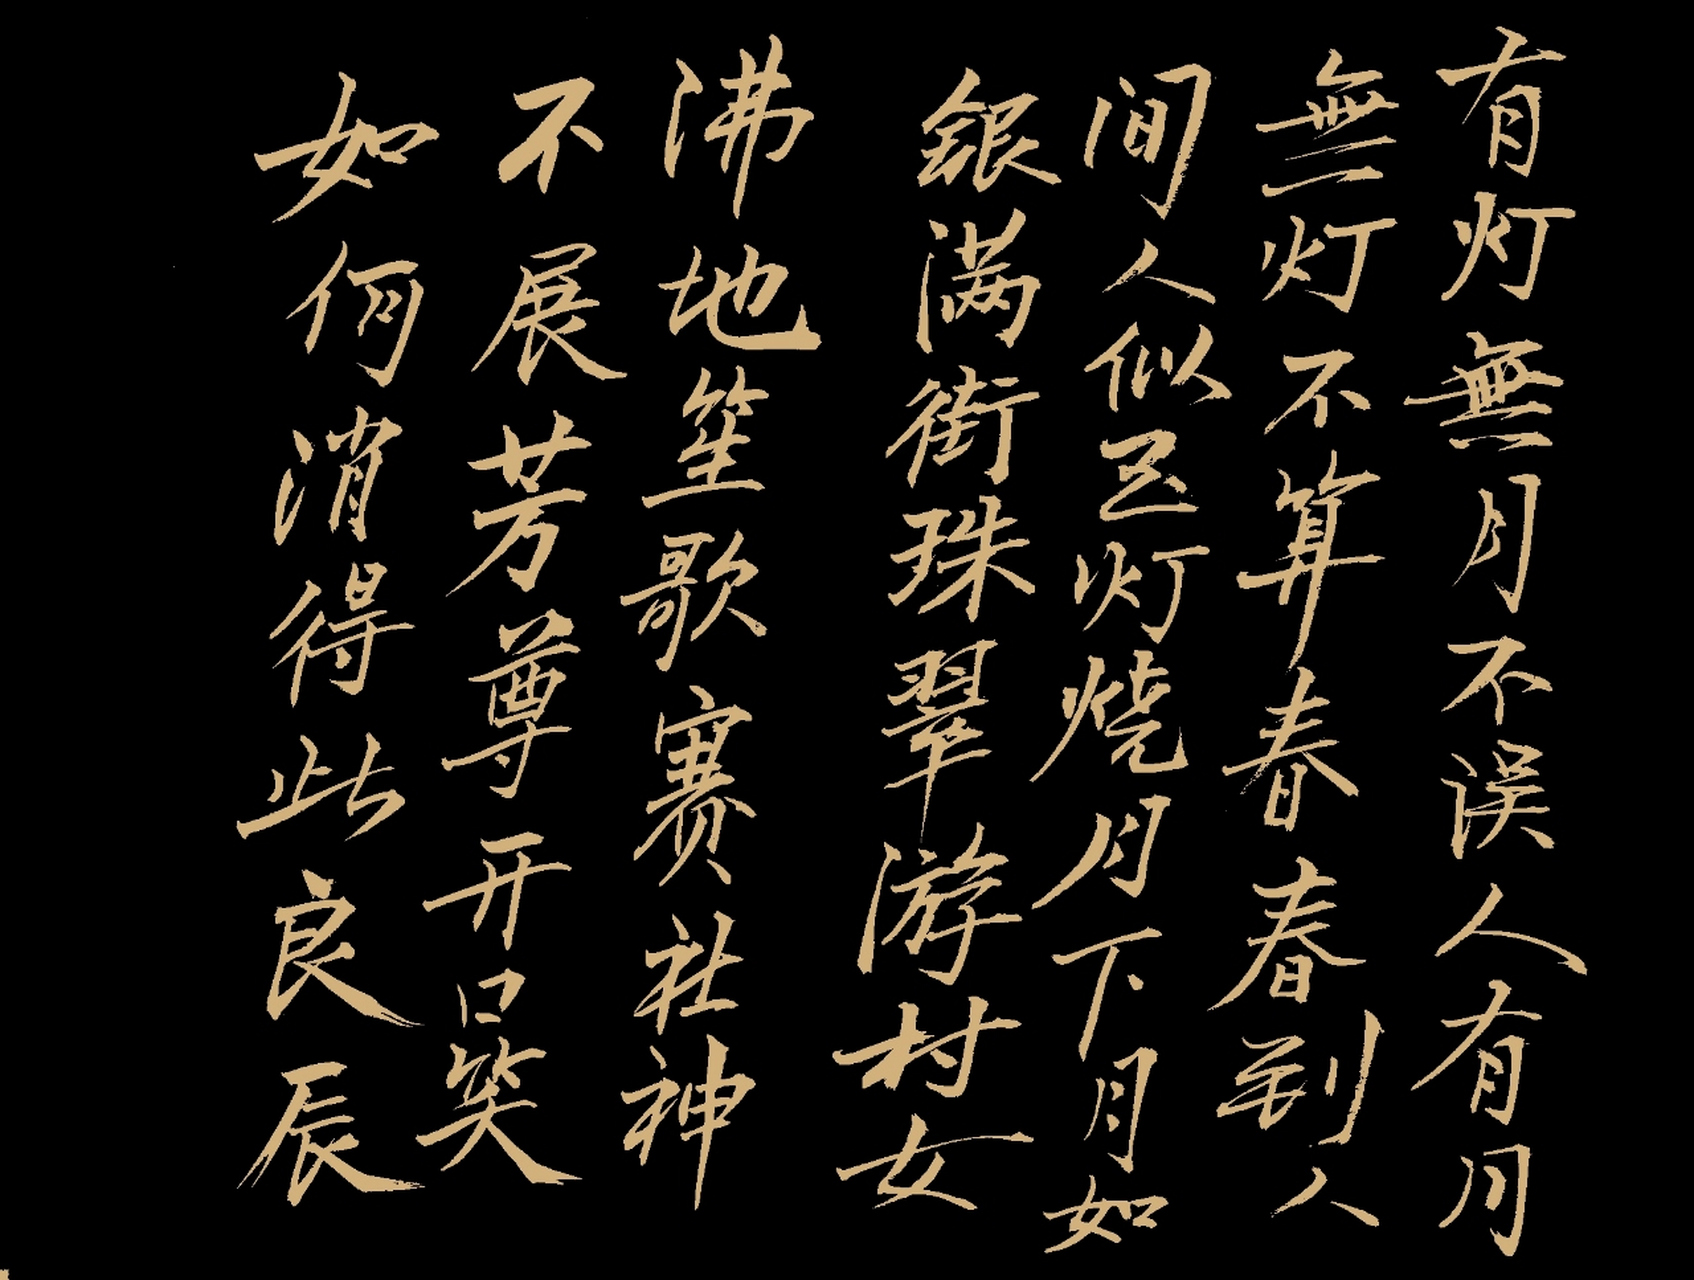 有灯無月不误人有月
無灯不算春春到人
间人似玉灯烧月下月如
銀满街珠翠游村女
沸地笙歌赛社神
不展芳尊开口笑
如何消得此良辰